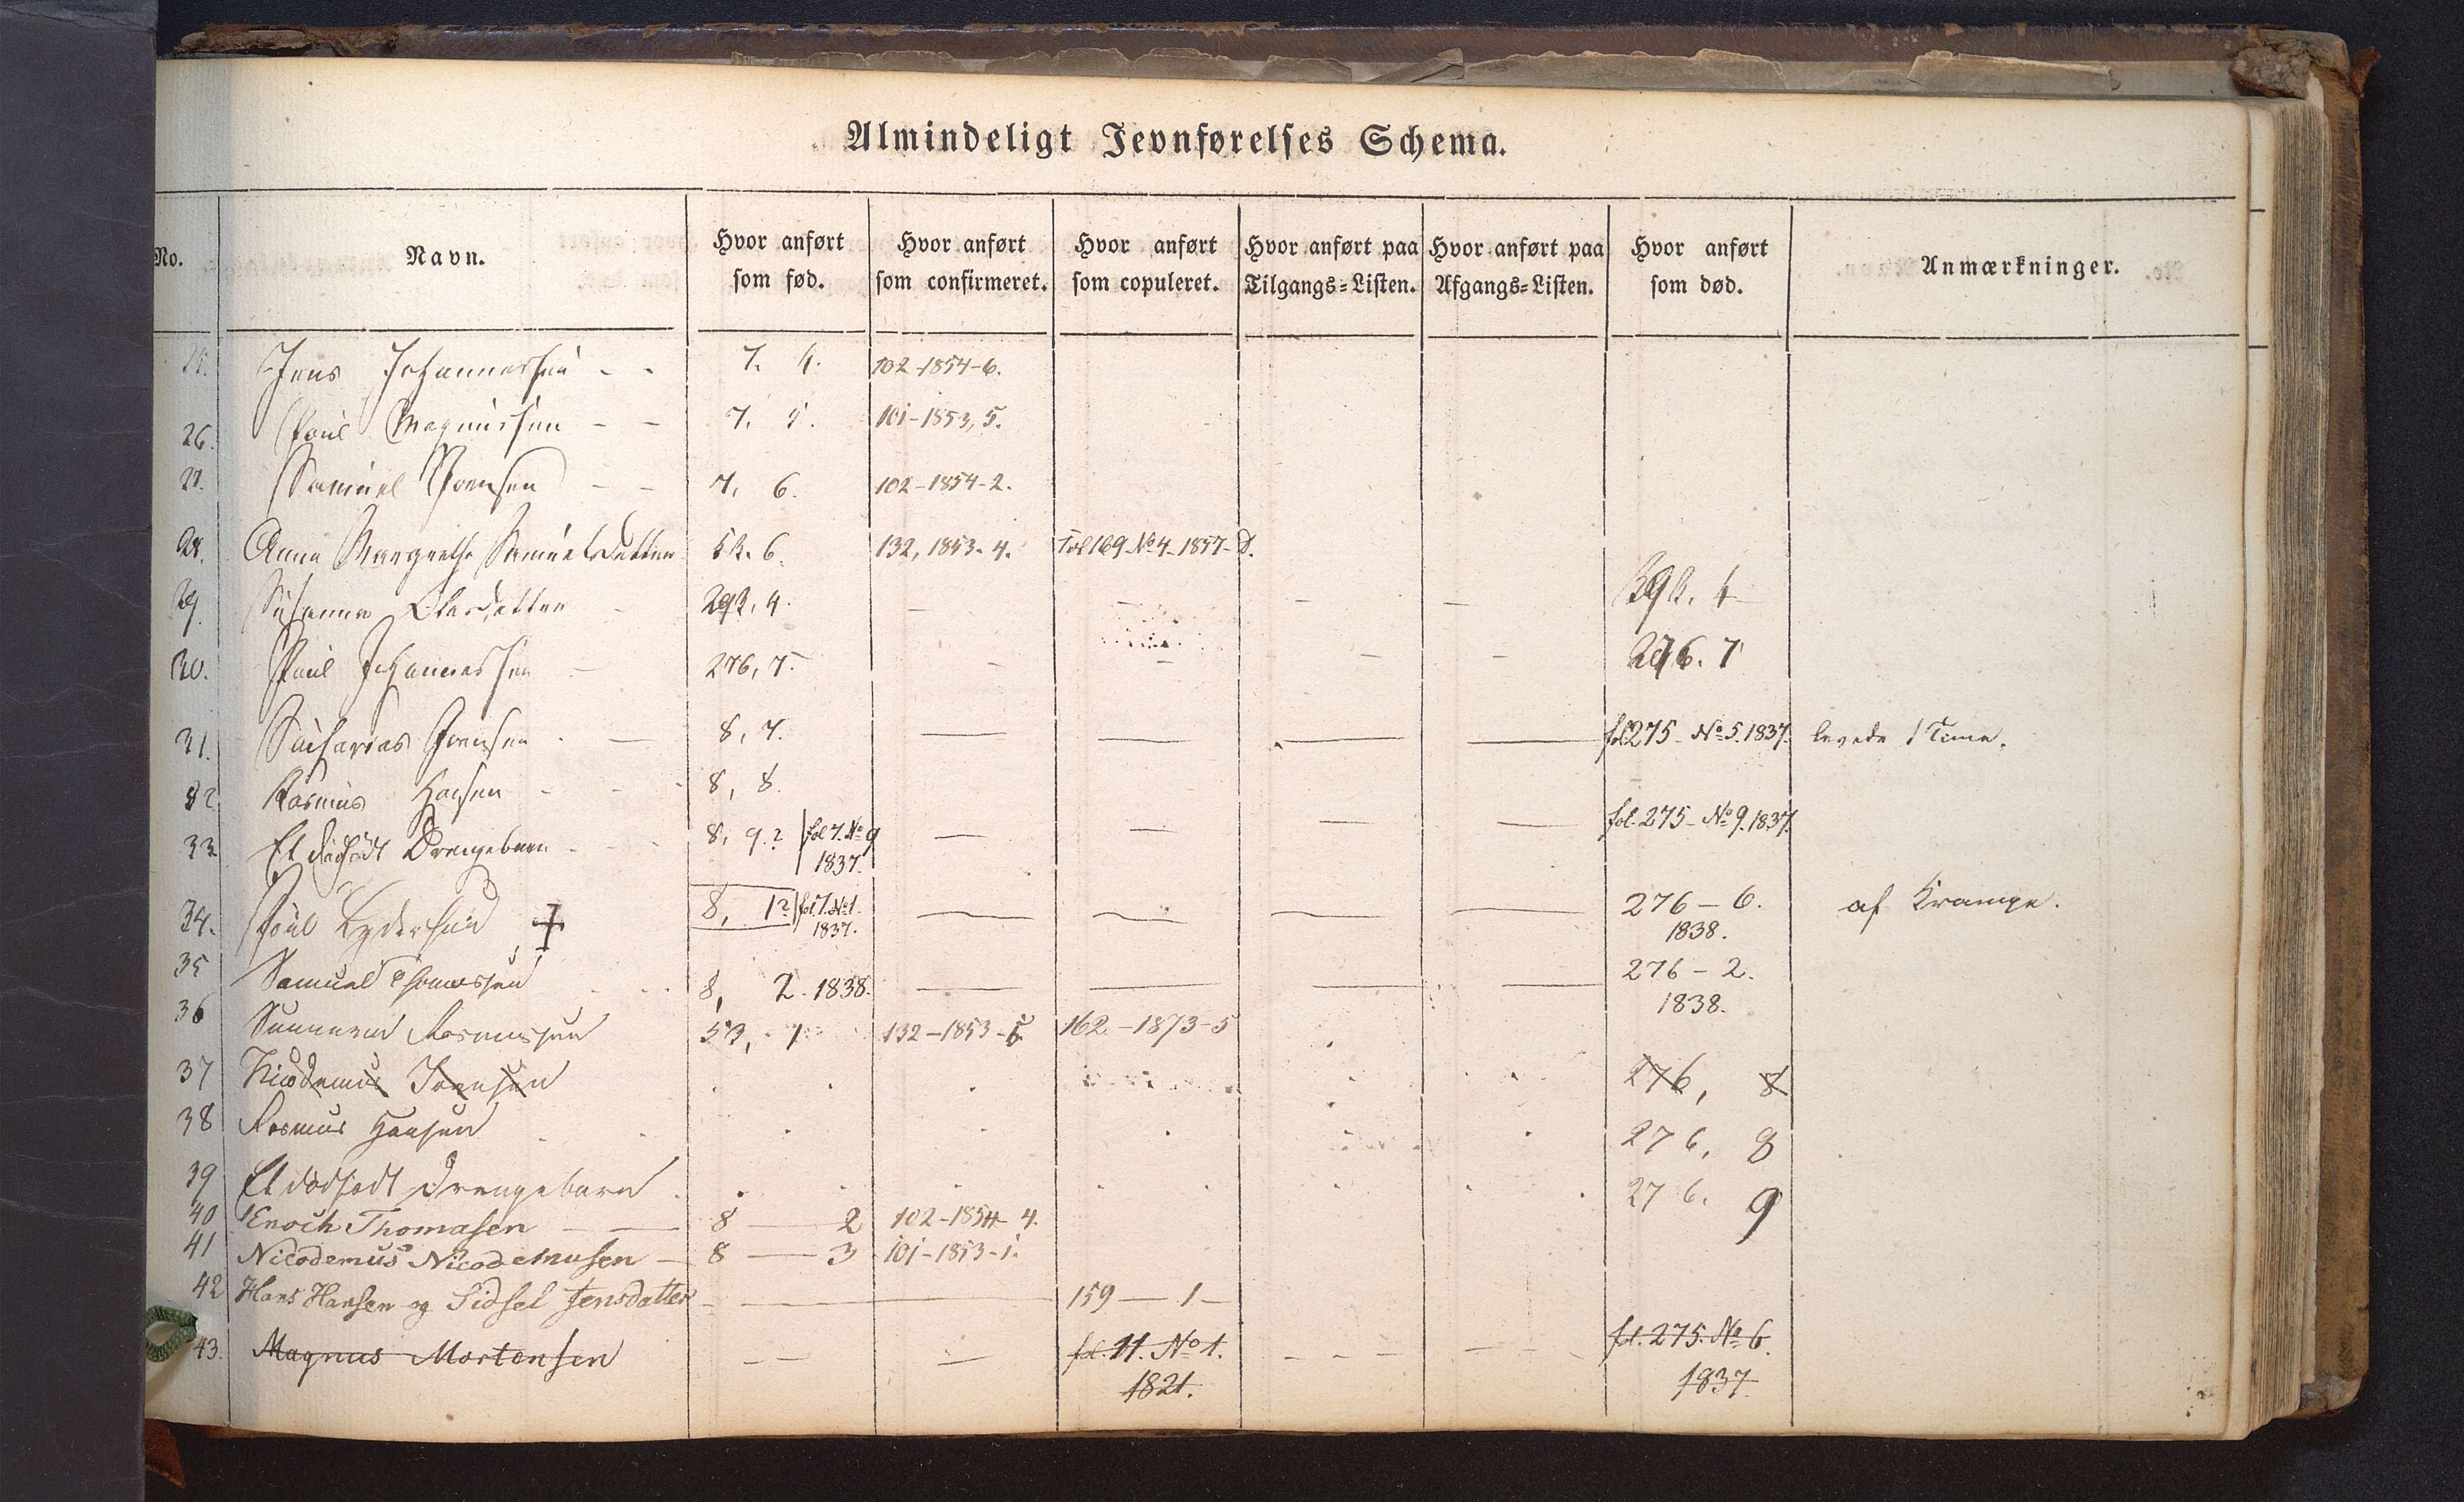 Almindeligt Jevnførelses Schema.
No. Navn. Hvor anført som fød. Hvor anført som confirmeret. Hvor anført som copuleret. Hvor anført paa Tilgangs=Listen. Hvor anført paa Afgangs=Listen. Hvor anført som død. Anmærkninger.
25. Jens Johannessen - - 7. 4. 102-1854-6.
26. Poul Magnussen - - 7. 5. 101-1853, 5.
27. Samuel Joensen - - 7. 6. 102-1854-2.
28. Anna Margrethe Samuelsdatter 52. 6. 132, 1853. 4. Fol 169 No 4-1857-
29. Susanna Olesdatter - 292, 4. - - - - 292. 4
30. Poul Johannessen - 276, 7. - - - - 276. 7
31. Sacharias Joensen - 8, 7. - - - - fol 275 No 5. 1837. levede 1 Time.
32. Rasmus Hansen - - 8, 8.
33. Et dødfødt Drengebarn - - 8, 9.? fol 7. No 9 1837. - - - - fol. 275- No 9. 1837.
34. Poul Lydersen 8, 1? fol. 7. No 1. 1837. - - - - 276-6. 1838. af Krampe.
35 Samuel Thomassen 8, 2. 1838. - - - - 276-2. 1838.
36 Rasmussen 53, 1 132-1853-5 162.-1873-5
37 Nicodemus Joensen 276, 8
38 Rasmus Hansen 276, 8
39 Et dødfødt Drengebarn 276. 9
40 Enoch Thomasen - - 8 - 2 102-1854-4.
41 Nicodemus Nicodemusen - 8 - 3 101-1853-1.
42 Hans Hansen og Sidsel Jensdatter - - - 159 - 1 -
43. Magnus Mortensen - - - fol. 11. No 1. 1821. - - - - - fol. 275. No 6. 1837.